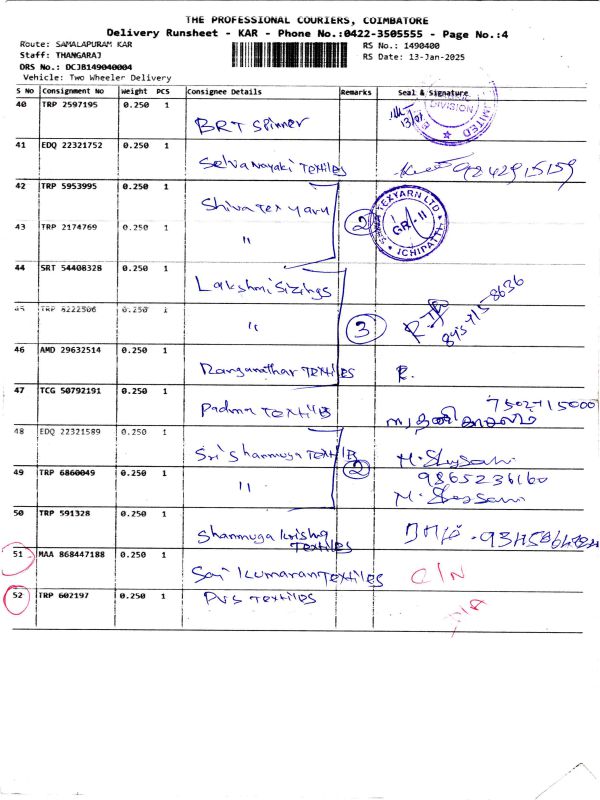 THE PROFESSIONAL COURIERS, COIMBATORE
Delivery Runsheet - KAR - Phone No.:0422-3505555 - Page No.:4
Route: SAMALAPURAM KAR
RS No.: 1490400
Staff: THANGARAJ
RS Date: 13-Jan-2025
DRS No.: DCJB149040004
Vehicle: Two Wheeler Delivery
S No Consignment No Weight PCS Consignee Details Remarks Seal & Signature
40 TRP 2597195 0.250 1
DIVISION LIMITED
BRT Spinner
41 EDQ 22321752 0.250 1
Selvanayaki Textiles 9842915159
42 TRP 5953995 0.250 1
Shiva Tex yarn 2
SHIVA TEXYARN LTD ICHIPATTI
43 TRP 2174769 0.250 1
"
44 SRT 54408328 0.250 1
Lakshmi Sizings
45 TRP 8222306 0.250 1
" 3 845-715-8636
46 AMD 29632514 0.250 1
Ranganathar Textiles R.
47 TCG 50792191 0.250 1
Padma Textiles
48 EDQ 22321589 0.250 1
Sri Shanmuga Textiles 2
49 TRP 6860049 0.250 1
" 9865236160
50 TRP 591328 0.250 1
Shanmuga Krishna
Textiles
51 MAA 868447188 0.250 1
Sri Kumaran Textiles C/N
52 TRP 602197 0.250 1
PVS Textiles